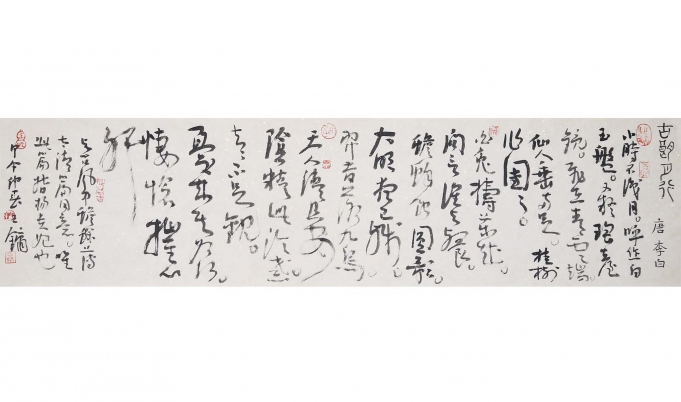 古朗月行
唐 李白
小時不識月。呼作白
玉盤。又疑瑤臺
鏡。飛在青雲端。
仙人垂兩足。桂樹
作團團。
白兔擣藥成。
問言誰與餐。
蟾蜍蝕圓影。
大明夜已殘。
羿昔落九烏
天人清且安
陰精此淪惑。
去去不足觀。
憂來其如何。
悽愴摧心
肝
古風 蟾蜍薄
太清篇同意。唯
此篇指楊貴妃也